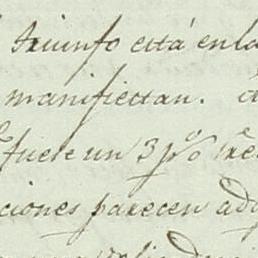 triunfo está en la
manifiestan.
fuese un 3po
ciones parecen ado